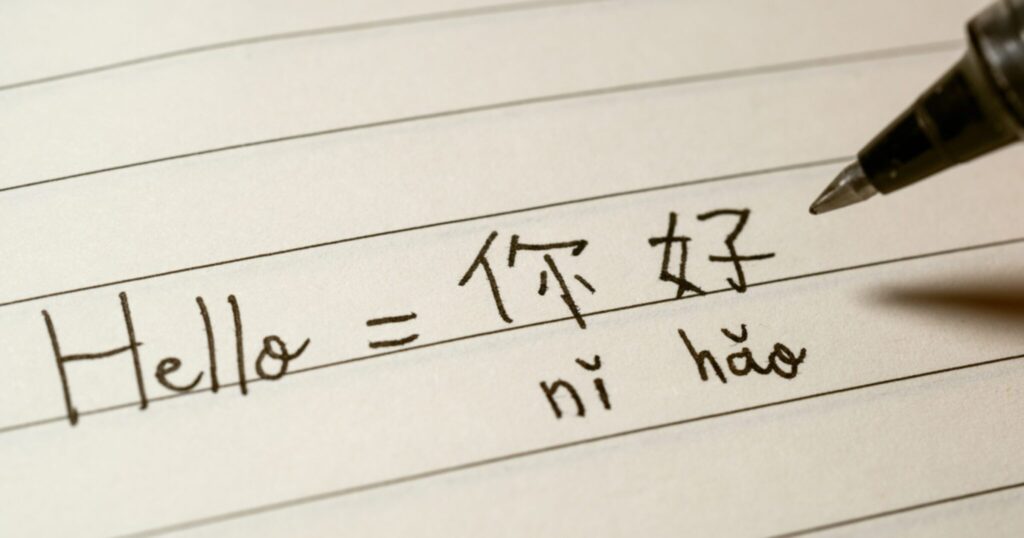 Hello = 你 好
nǐ hǎo